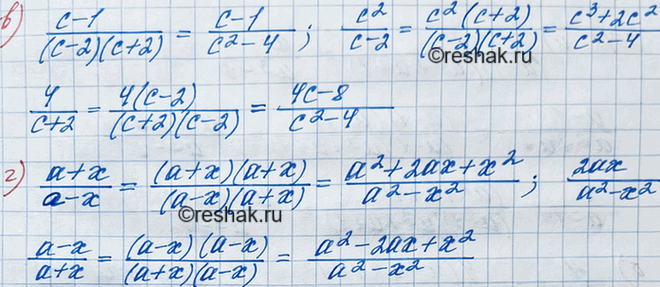 в) (c-1)/((c-2)(c+2)) = (c-1)/(c²-4); c²/(c-2) = (c²(c+2))/((c-2)(c+2)) = (c³+2c²)/(c²-4)
©reshak.ru
4/(c+2) = (4(c-2))/((c+2)(c-2)) = (4c-8)/(c²-4)
г) (a+x)/(a-x) = ((a+x)(a+x))/((a-x)(a+x)) = (a²+2ax+x²)/(a²-x²); 2ax/(a²-x²)
©reshak.ru
(a-x)/(a+x) = ((a-x)(a-x))/((a+x)(a-x)) = (a²-2ax+x²)/(a²-x²)